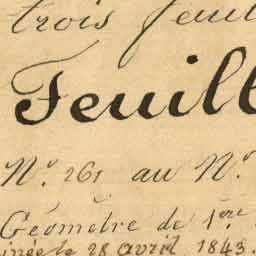 trois feuil
Feuill
N.° 261 au N.°
Géomètre de 1.ere
inée le 28 avril 1843.